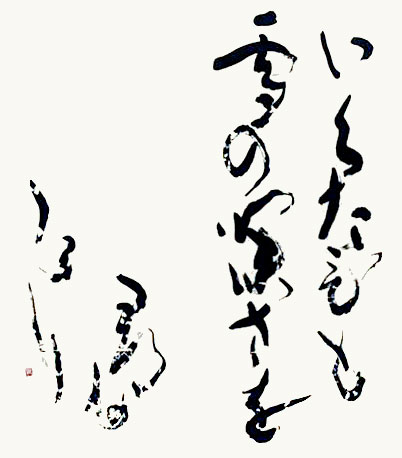 いくたびも
雪の深さを
尋ね
けり